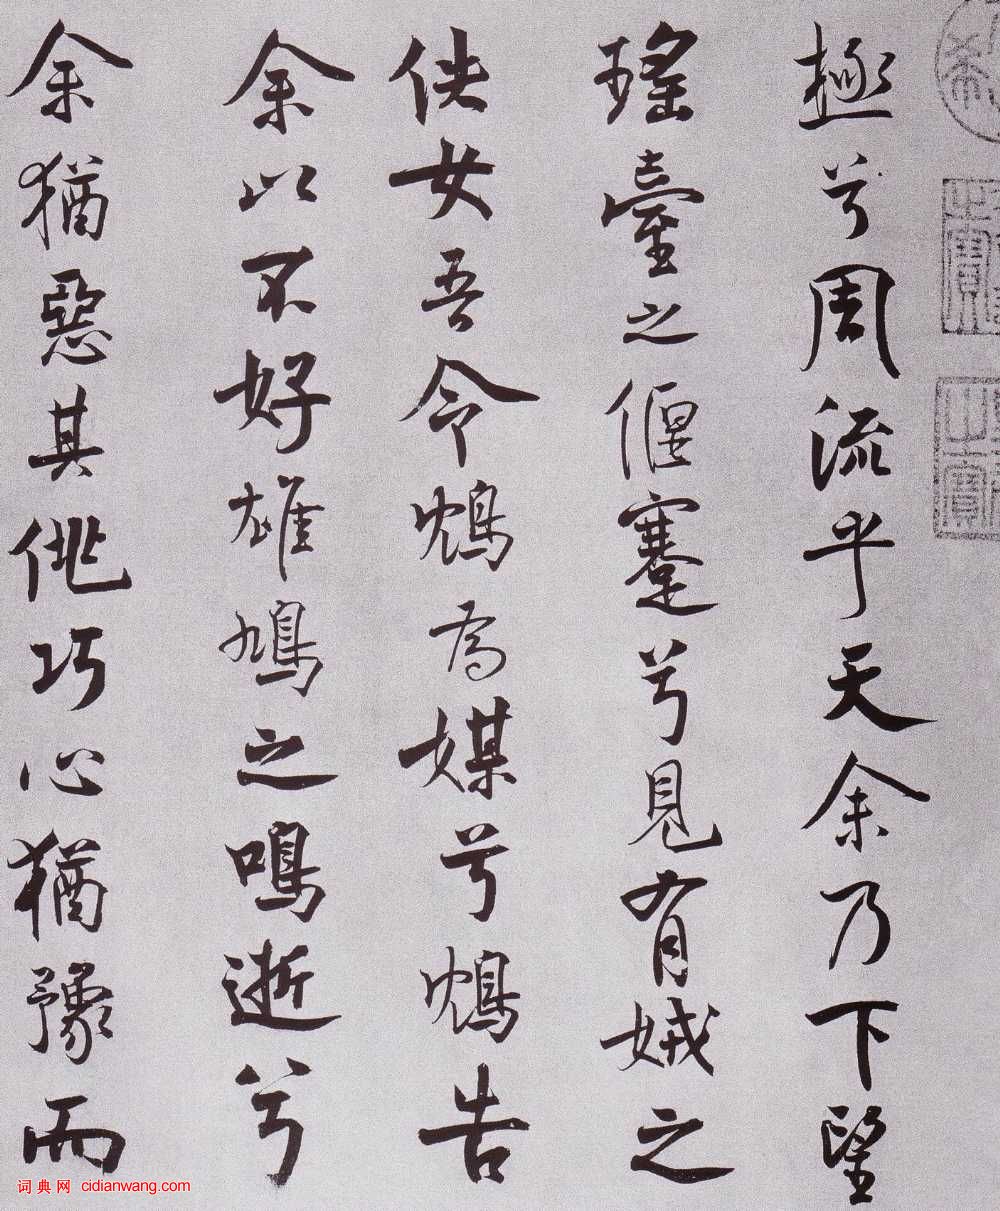 之寶
之寶
極兮周流乎天余乃下望
瑤臺之偃蹇兮見有娀之
佚女吾令鴆為媒兮鴆告
余以不好雄鳩之鳴逝兮
余猶惡其佻巧心猶豫而
词典网 cidianwang.com